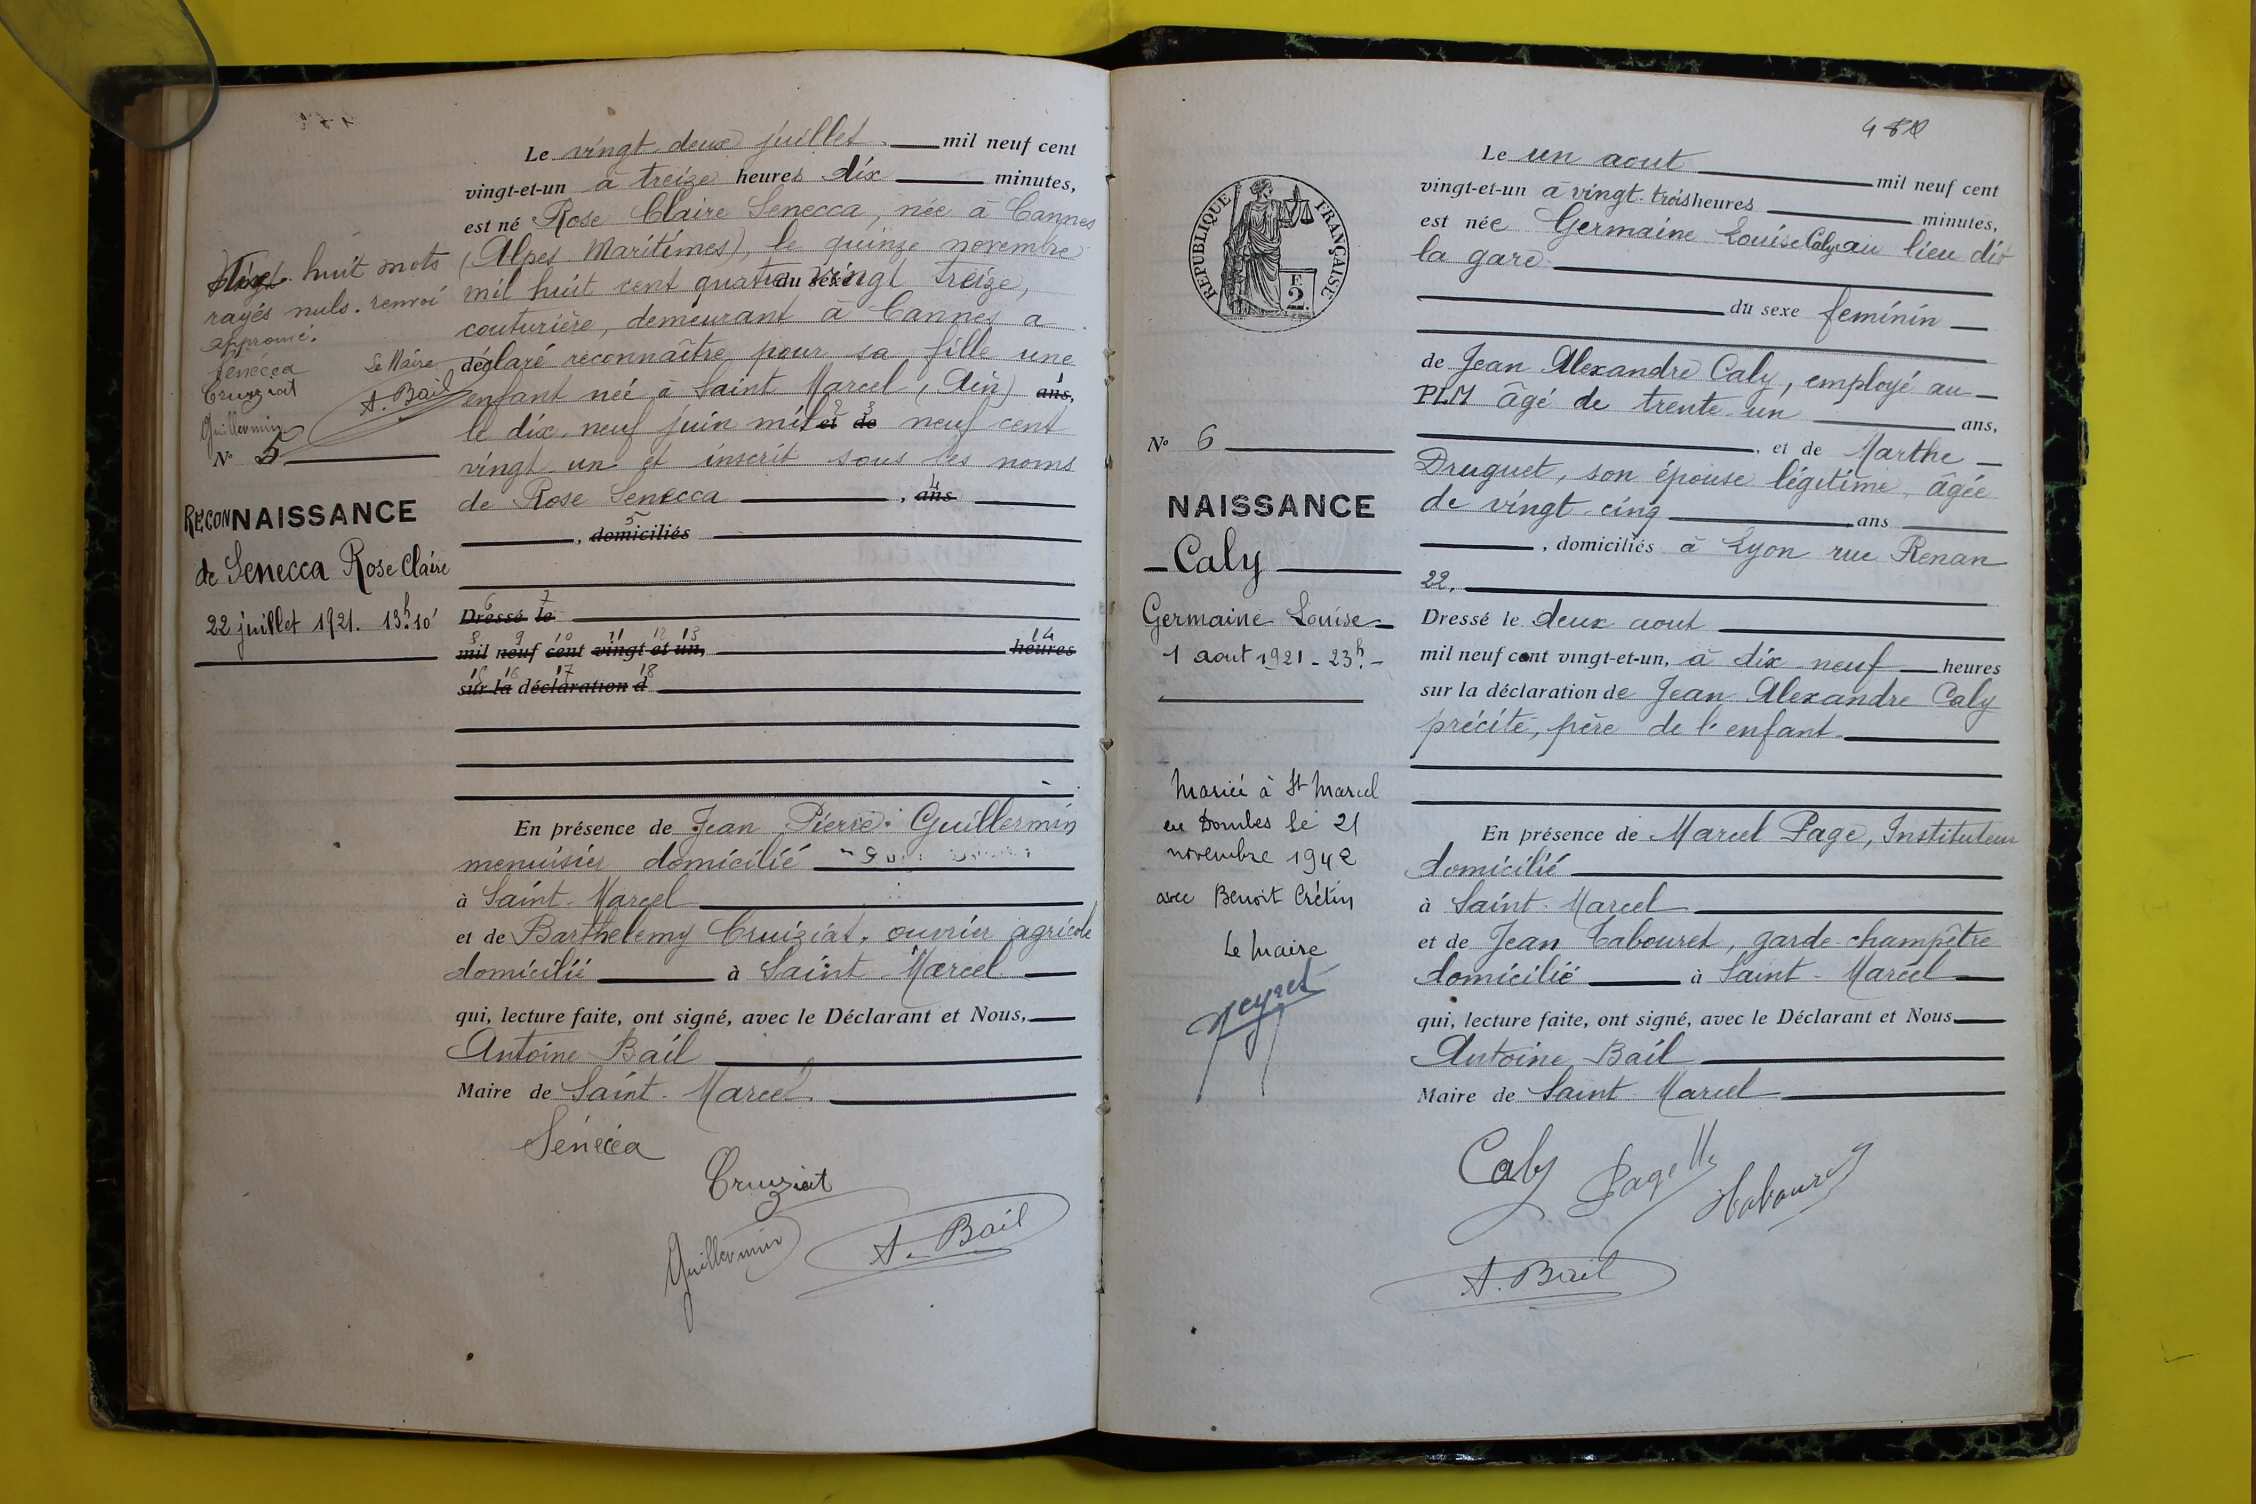 Le vingt deux juillet mil neuf cent
vingt-et-un à treize heures dix minutes,
est né Rose Claire Senecca, née à Cannes
(Alpes Maritimes), le quinze novembre
mil huit cent quatre vingt treize, du sexe
couturière, demeurant à Cannes a
déclaré reconnaître pour sa fille une
enfant née à Saint Marcel (Ain) ans, 1
le dix neuf juin mil et 2 de 3 neuf cent
vingt un et inscrit sous les noms
de Rose Senecca , ans 4
, domiciliés 5
Dressé 6 le 7
mil 8 neuf 9 cent 10 vingt 11 et 12 un, 13 heures 14
sur 15 la 16 déclaration 17 d 18
En présence de Jean Pierre Guillermin
menuisier domicilié
à Saint-Marcel
et de Barthelemy Cruiziat, ouvrier agricole
domicilié à Saint-Marcel
qui, lecture faite, ont signé, avec le Déclarant et Nous,
Antoine Bail
Maire de Saint-Marcel.
Sénecca
Cruiziat
Guillermin
A. Bail
huit mots
rayés nuls. renvoi
approuvé.
Sénecca
Le Maire
Cruiziat
A. Bail
Guillermin
N° 5
RECONNAISSANCE
de Senecca Rose Claire
22 juillet 1921. 13h.10'
Le un aout mil neuf cent
vingt-et-un à vingt-trois heures minutes,
est née Germaine Louise Caly au lieu dit
la gare
du sexe feminin
de Jean Alexandre Caly, employé au
PLM âgé de trente-un ans,
, et de Marthe
Druguet, son épouse légitime, âgée
de vingt-cinq ans
, domiciliés à Lyon rue Renan
22.
Dressé le deux aout
mil neuf cent vingt-et-un, à dix-neuf heures
sur la déclaration de Jean Alexandre Caly
précité, père de l'enfant
En présence de Marcel Page, Instituteur
domicilié
à Saint-Marcel
et de Jean Tabouret, garde-champêtre
domicilié à Saint-Marcel
qui, lecture faite, ont signé, avec le Déclarant et Nous
Antoine Bail
Maire de Saint-Marcel
Caly
Page
Tabouret
A. Bail
REPUBLIQUE FRANÇAISE
E
2.
N° 6
NAISSANCE
Caly
Germaine Louise
1 aout 1921 - 23h.
Mariée à St Marcel
en Dombes le 21
novembre 1942
avec Benoit Crétin
Le Maire